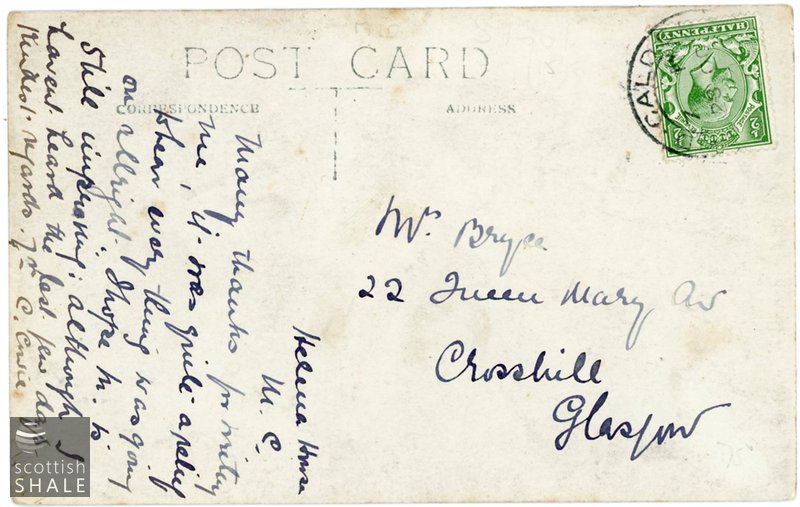 POST CARD
CORRESPONDENCE
ADDRESS
HALFPENNY
CALD
Helena House
M. C.
Many thanks for writing
me, it was quite a relief
to hear every thing was going
on allright. I hope h. is
still improving: although I
havent heard the last few days
Kindest regards. Yrs C.
Mrs Bryce
22 Queen Mary Av
Crosshill
Glasgow
scottish
SHALE